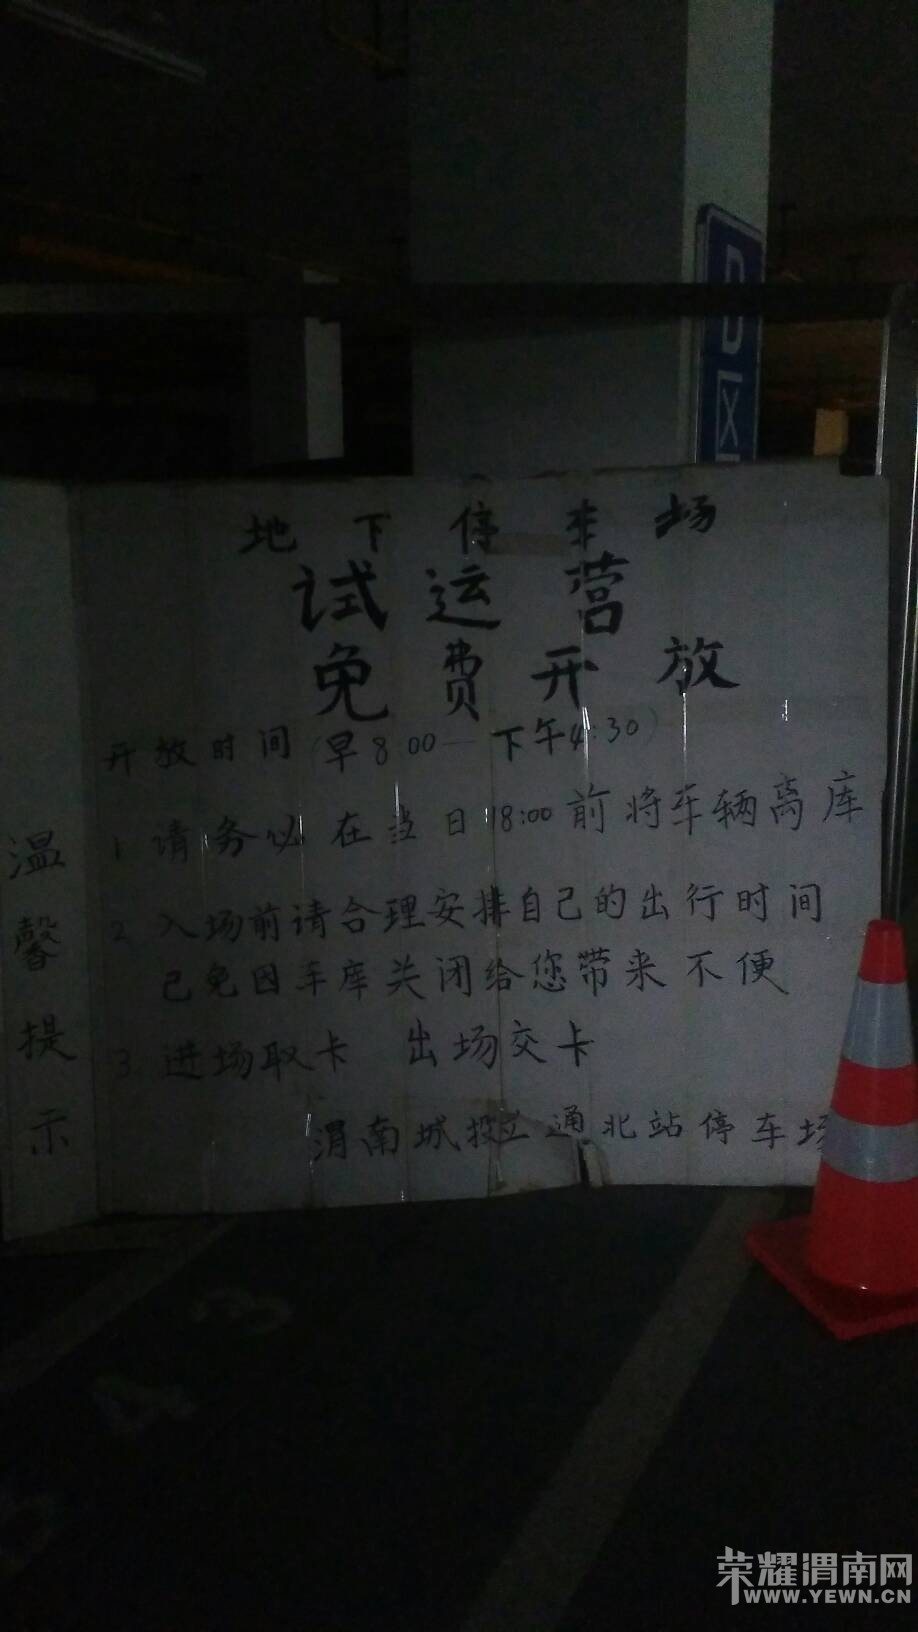 D区
地下停车场
试运营
免费开放
开放时间(早8:00—下午4:30)
1 请务必在当日18:00前将车辆离库
2 入场前请合理安排自己的出行时间
己免因车库关闭给您带来不便
3 进场取卡 出场交卡
渭南城投 通北站停车场
温馨提示
荣耀渭南网
WWW.YEWN.CN